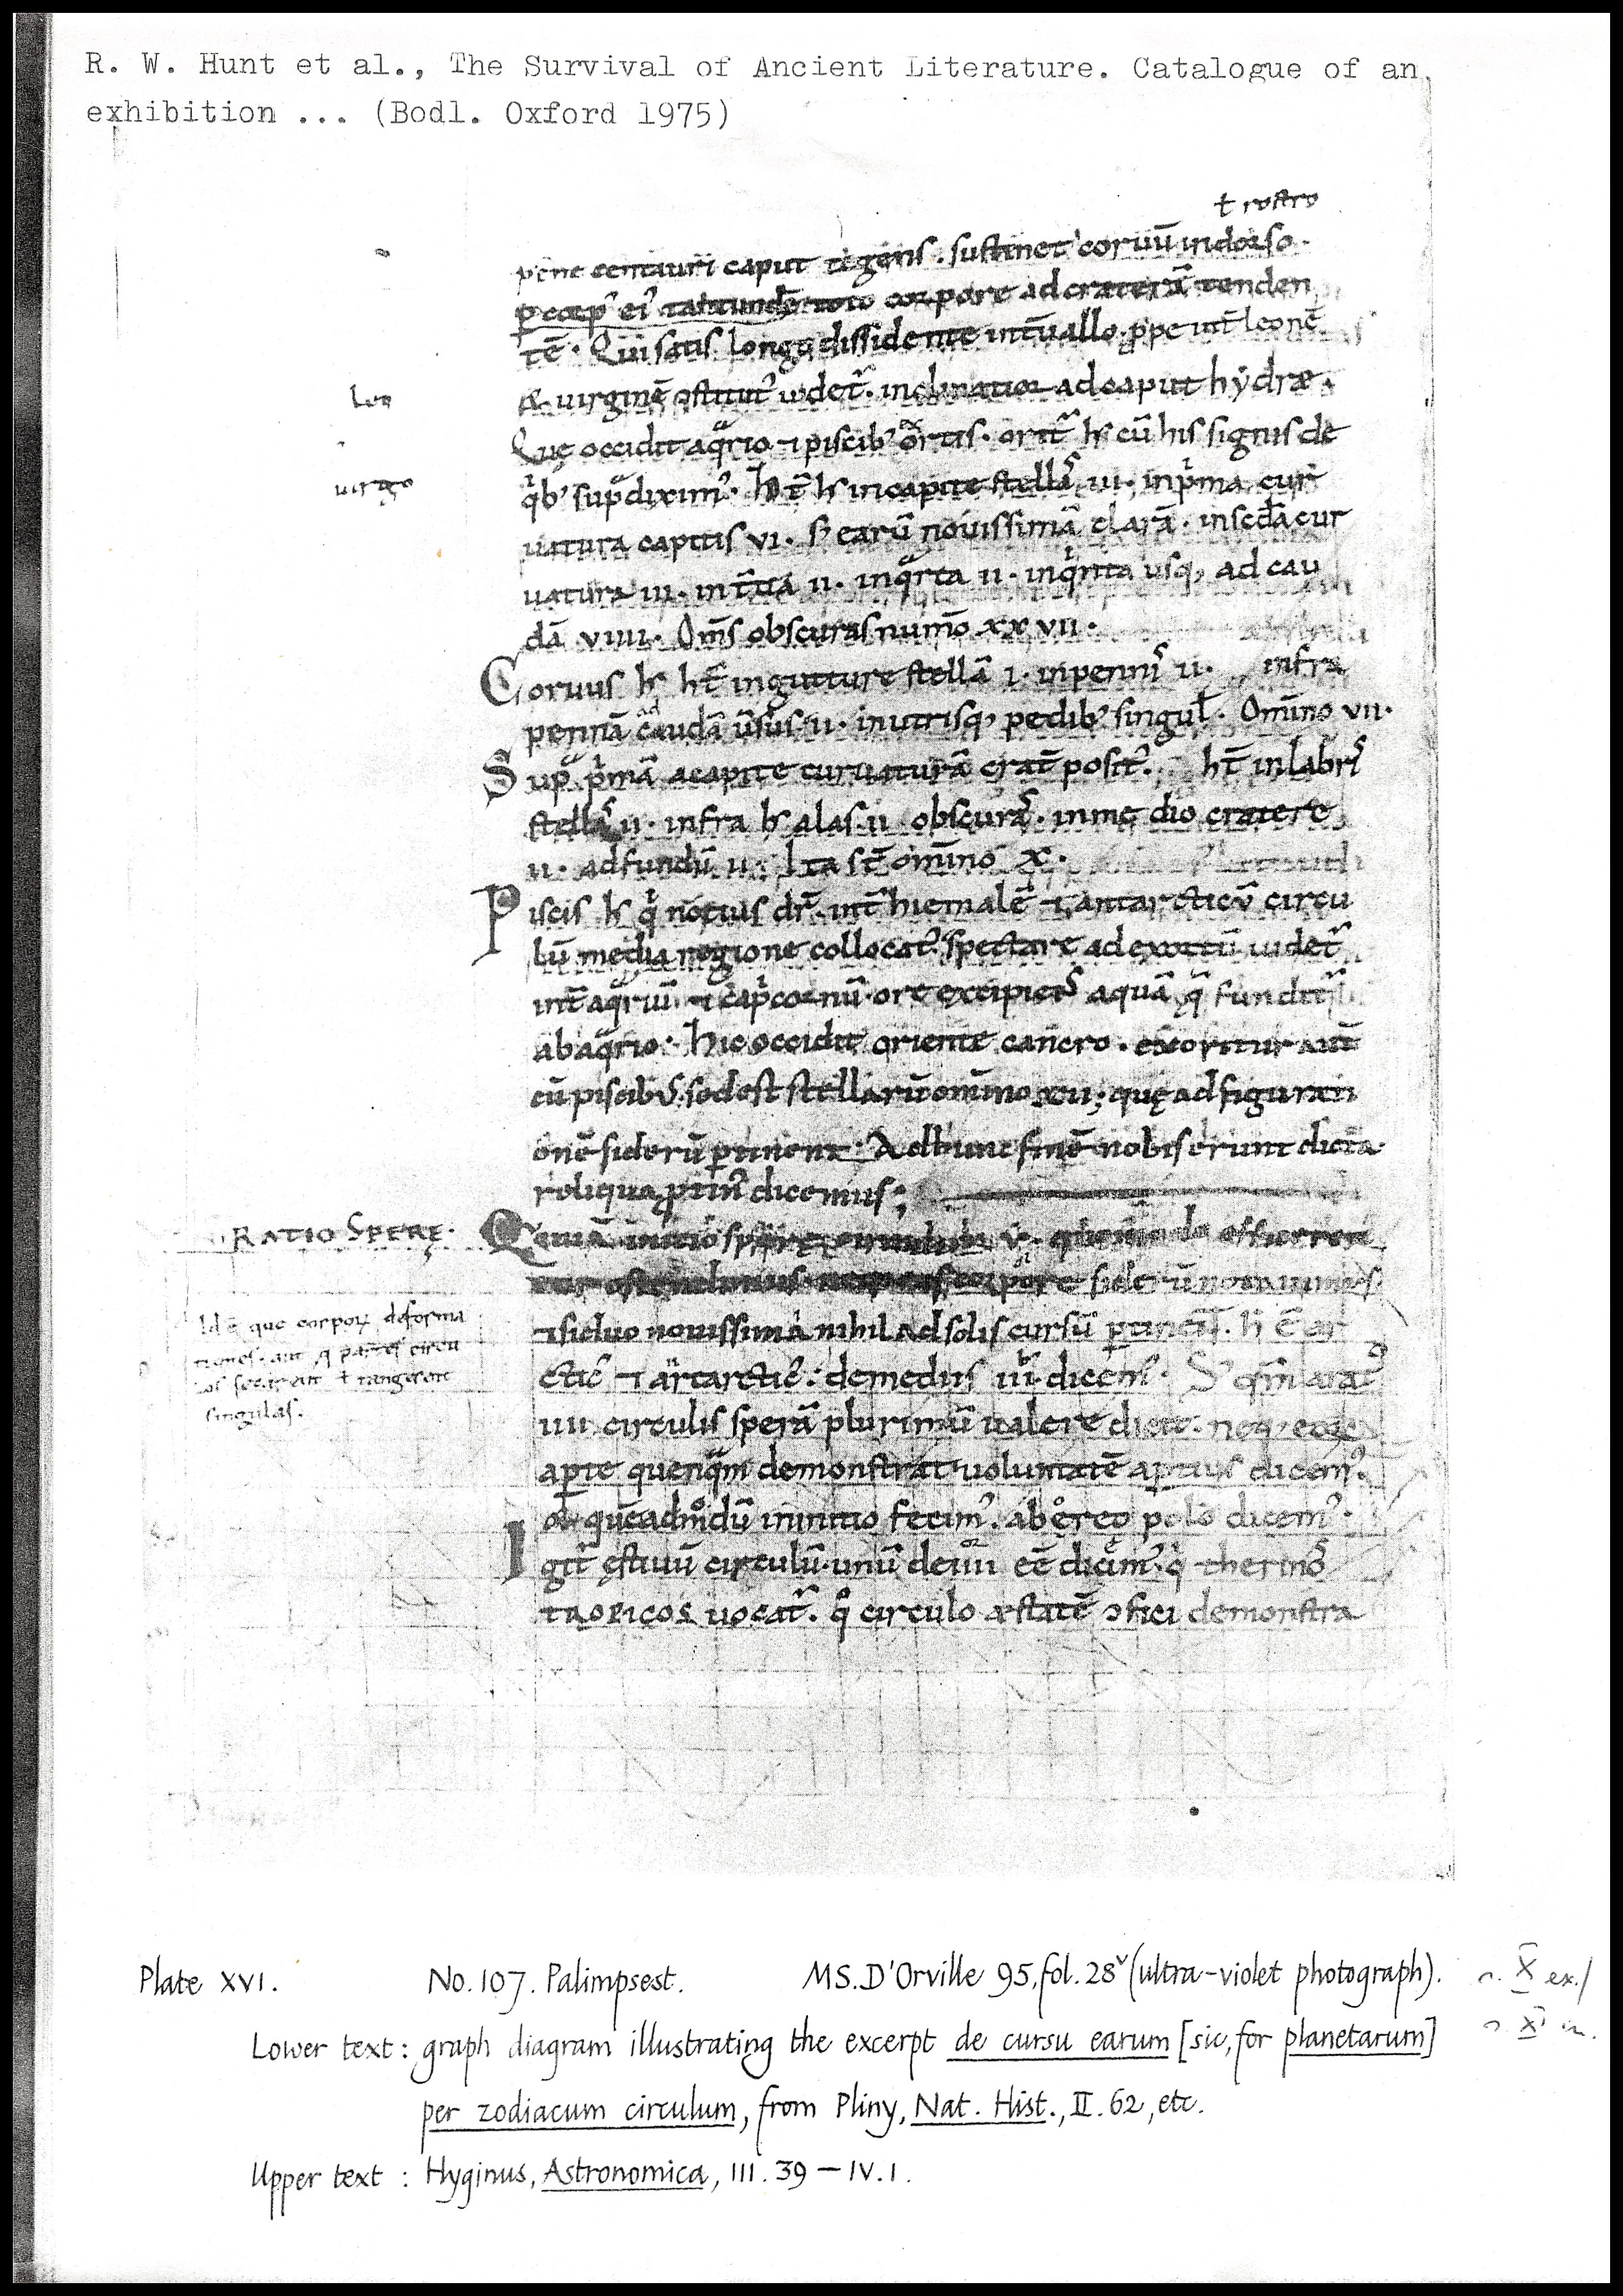 R. W. Hunt et al., The Survival of Ancient Literature. Catalogue of an
exhibition ... (Bodl. Oxford 1975)
ɫ rostro
pene centauri caput tigens . sustinet coruū in dorso.
corpore ad craterā tenden
tē . Qui satis longo dissidente intũallo . ꝓpe int̄ leonē
leo
& uirginē ꝯstitui᷒ uidet᷑. inclinatior ad caput hydræ.
Quę occidit aqͣrio ⁊ piscib᷒ exortis . orit᷑ hꝰ cū his signis de
uirgo
qͥb᷒ supͣ diximꝰ. in capite stellas iii . in pͥma cur
uatura capitis vi . sꝫ earū nouissimā clarā . in scd̄a cur
uatura iii . in t̄tia ii . in qͣrta ii . in qͥnta usq; ad cau
dā viiii . Om̄s obscuras num̄o xxvii .
Coruus hꝰ ht̄ in gutture stellā i . in pennis ii . infra
pennā ad caudā ũsus ii . in utrisq; pedib᷒ singul̄ . Om̄ino vii .
Supͣ pͥmā a capite curuaturā crat̄ posit᷒. ht̄ in labris
stellas ii . infra alas ii obscuras . in medio cratere
ii . ad fundū ii . Ita st̄ om̄ino x .
Piscis hꝰ qͥ notius dr̄ . int̄ hiemalē ⁊ antarcticū circu
lū media regione collocat᷒. spectare ad exortū uidet᷑
int̄ aqͣriū ⁊ capͥcornū . ore excipiens aquā quę fundit᷑
ab aqͣrio . Hic occidit oriente cancro . exoritur aūt
cū piscib᷒ . sed est stellarū om̄ino xii ; quę ad figurati
onē siderū ꝑtinent . Ad hunc finē nobis erunt dicta.
reliqua ꝓtin᷒ dicemus ;
RATIO SPERĘ .
siderū
Id ē que corporꝝ deforma
tiones . aut partes circu
los secarent ɫ tangerent
singulas .
nouissima nihil ad solis cursū ꝑtinent . h̄ ē ar
ctic᷒ ⁊ antarctic᷒ . de mediis iii . dicem᷒ . Sꝫ qm̄ arat᷒
iiii circulis sperā plurimū ualere dicit . neq;
apte quenqͣm demonstrat uoluntatē aptius dicem᷒ .
queadmͦdū in initio fecim᷒ . ab polo dicem᷒ .
Igit᷑ ęstiuū circulū . unū de iiii eē dicim᷒ . qͥ therinos
tropicos uocat᷑ . qͦ circulo æstatē ꝯfici demonstra
Plate XVI. No. 107. Palimpsest. MS. D'Orville 95, fol. 28ᵛ (ultra-violet photograph).
X ex./
XI in.
Lower text : graph diagram illustrating the excerpt de cursu earum [sic, for planetarum]
per zodiacum circulum, from Pliny, Nat. Hist., II. 62, etc.
Upper text : Hyginus, Astronomica, III. 39 — IV. 1.